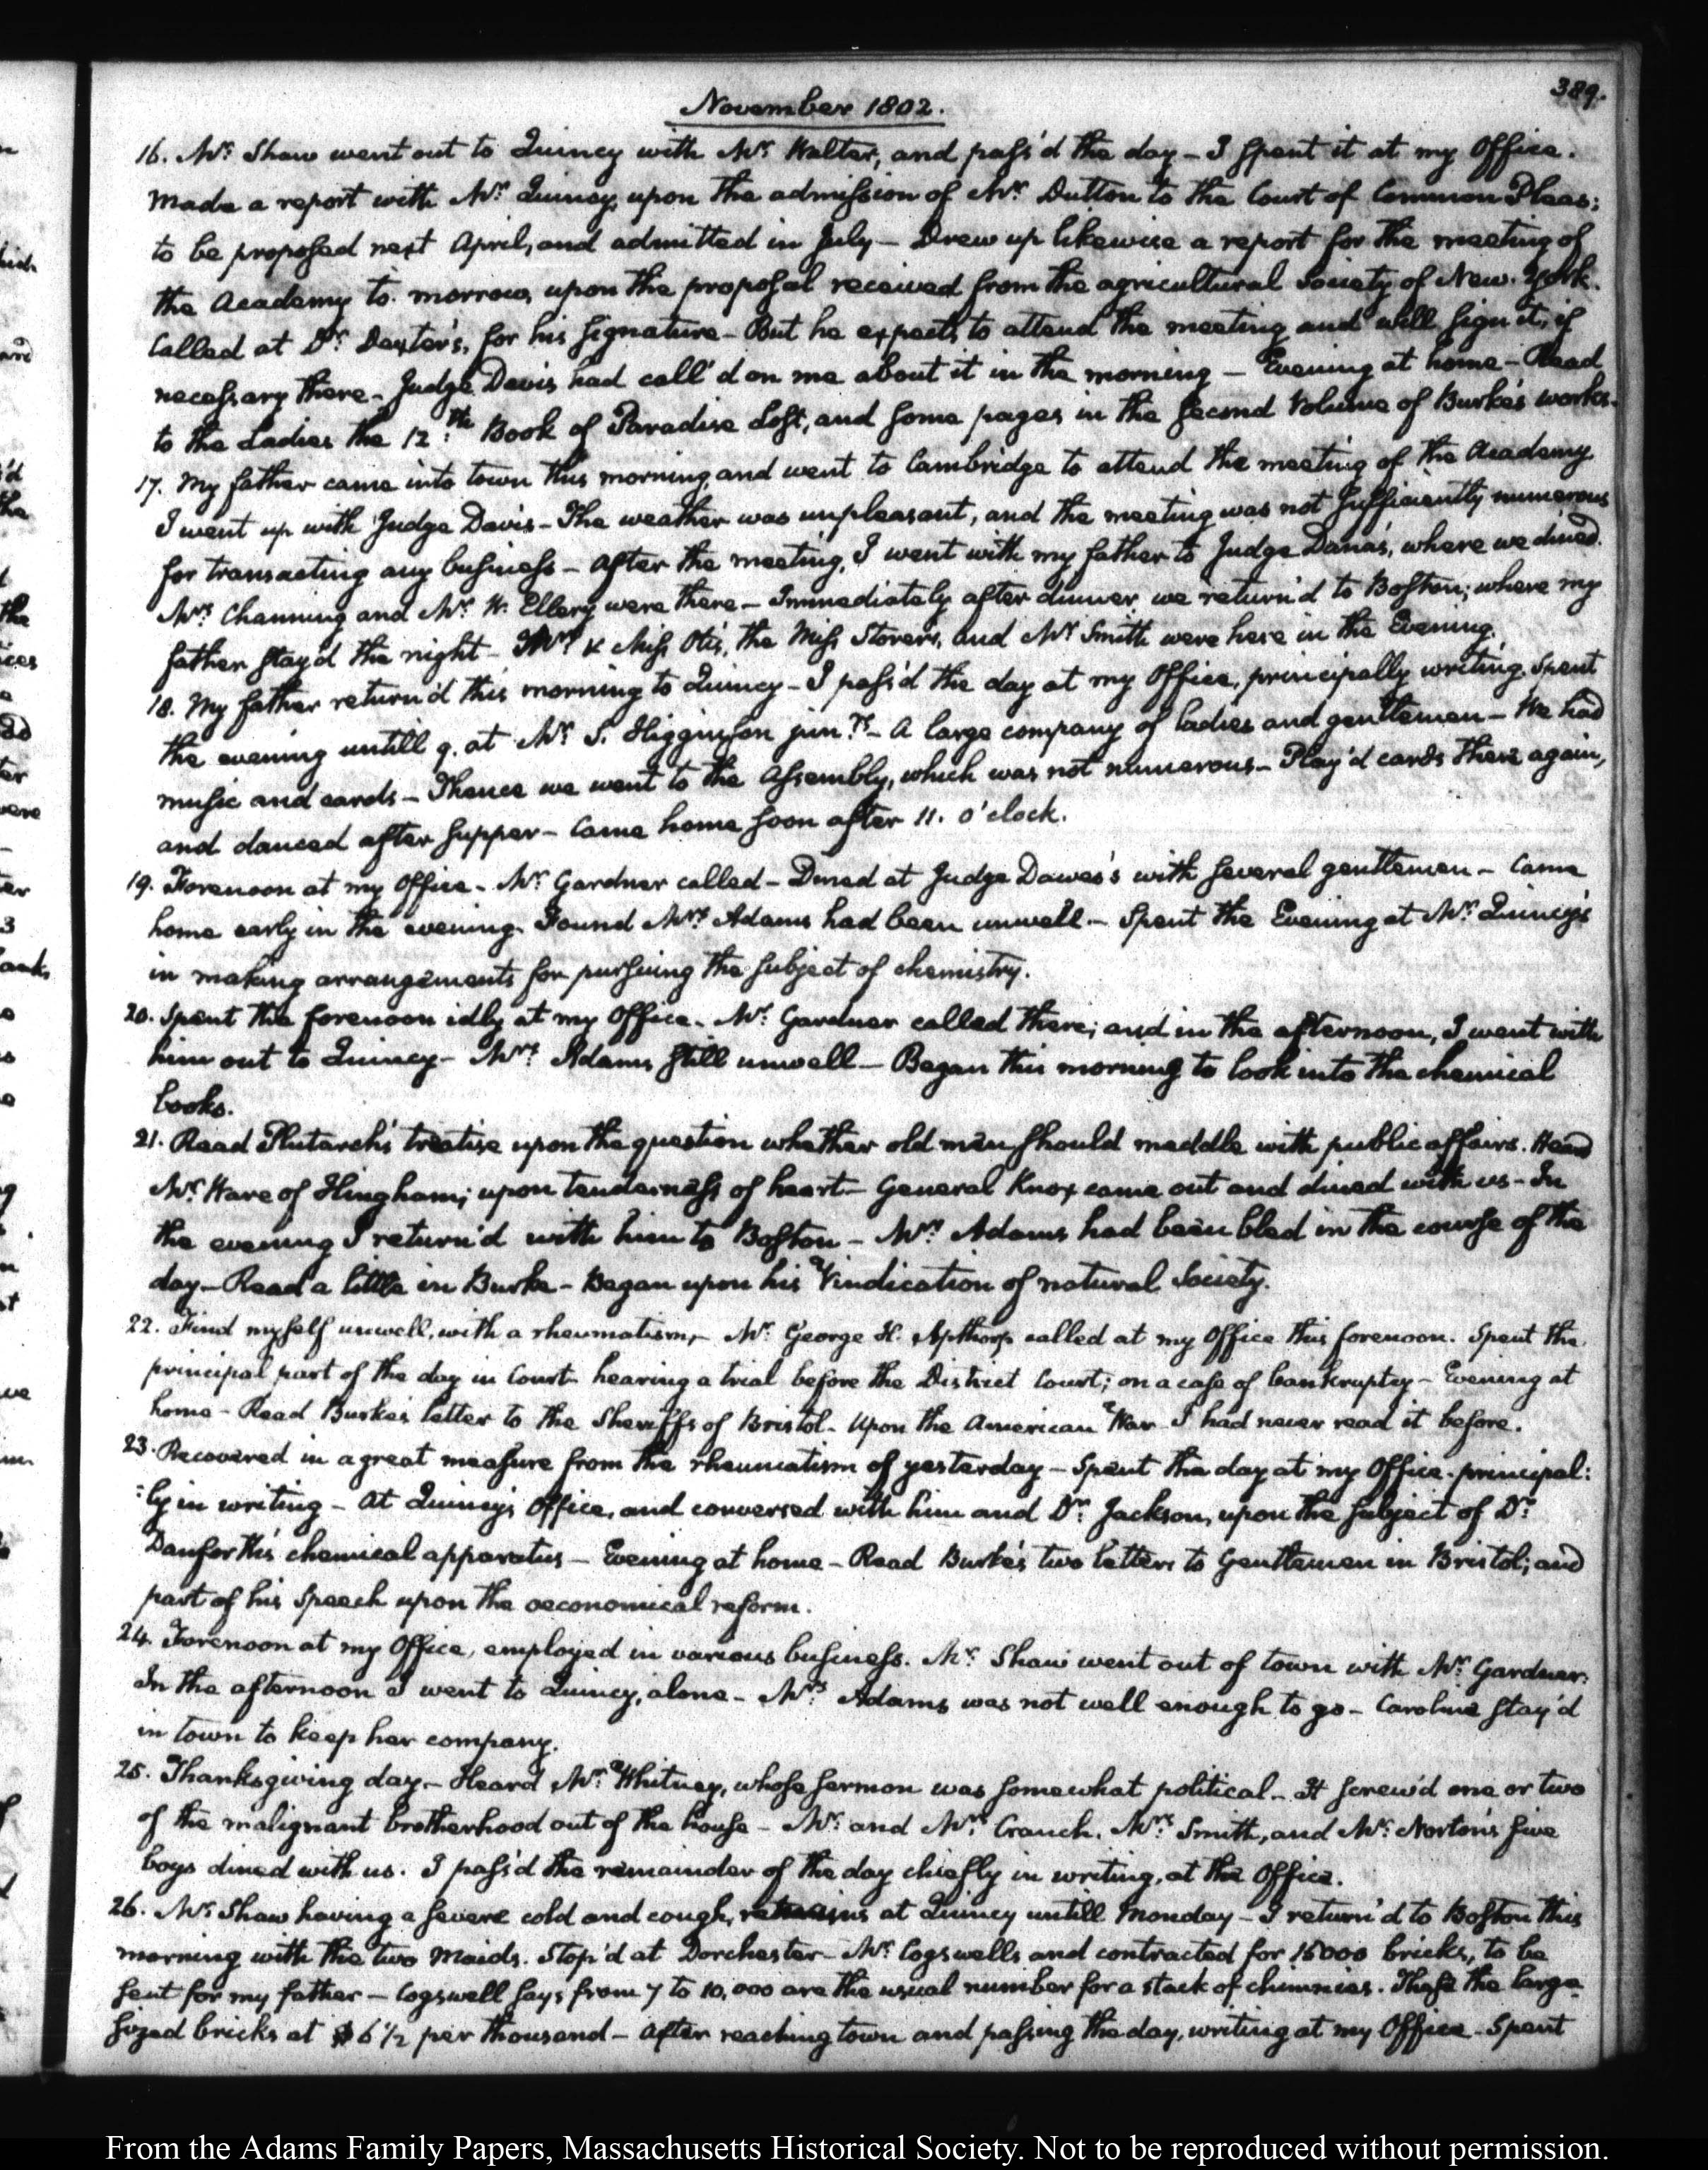 389.
November 1802.
16. Mr. Shaw went out to Quincy with Mr. Walter, and pass'd the day – I spent it at my Office.
Made a report with Mr. Quincy, upon the admission of Mr. Dutton to the Court of Common Pleas;
to be proposed next April, and admitted in July – Drew up likewise a report for the meeting of
the Academy to-morrow, upon the proposal received from the agricultural Society of New-York.
Called at Dr. Dexter's, for his signature – But he expects to attend the meeting and will sign it, if
necessary there – Judge Davis had call'd on me about it in the morning – Evening at home – Read
to the Ladies the 12th. Book of Paradise Lost, and some pages in the second Volume of Burke's works.
17. My father came into town this morning, and went to Cambridge to attend the meeting of the Academy
I went up with Judge Davis – The weather was unpleasant, and the meeting was not sufficiently numerous
for transacting any business – After the meeting, I went with my father to Judge Dana's, where we dined.
Mrs. Channing and Mr. W. Ellery were there – Immediately after dinner we return'd to Boston; where my
father stay'd the night – Mrs. & Miss Otis, the Miss Storers, and Mr. Smith were here in the Evening.
18. My father return'd this morning to Quincy – I pass'd the day at my Office, principally writing. Spent
the evening untill 9. at Mr. S. Higginson junr.'s – A large company of ladies and gentlemen – We had
music and cards – Thence we went to the Assembly, which was not numerous – Play'd cards there again,
and danced after supper – Came home soon after 11. o'clock.
19. Forenoon at my Office – Mr. Gardner called – Dined at Judge Dawes's with several gentlemen – Came
home early in the evening. Found Mrs. Adams had been unwell – Spent the Evening at Mr. Quincy's
in making arrangements for pursuing the subject of chemistry.
20. Spent the forenoon idly at my Office. Mr. Gardner called there; and in the afternoon, I went with
him out to Quincy – Mrs. Adams still unwell – Began this morning to look into the chemical
books.
21. Read Plutarch's treatise upon the question whether old men should meddle with public affairs. Heard
Mr. Ware of Hingham; upon tenderness of heart – General Knox came out and dined with us – In
the evening I return'd with him to Boston – Mrs. Adams had been bled in the course of the
day – Read a little in Burke – Began upon his Vindication of natural Society.
22. Find myself unwell, with a rheumatism – Mr. George H. Apthorp called at my Office this forenoon. Spent the
principal part of the day in Court hearing a trial before the District Court; on a case of bankruptcy – Evening at
home – Read Burke's letter to the Sheriffs of Bristol – Upon the American War – I had never read it before.
23. Recovered in a great measure from the rheumatism of yesterday – Spent the day at my Office – principal:
:ly in writing – At Quincy's Office, and conversed with him and Dr. Jackson, upon the subject of Dr.
Danforth's chemical apparatus – Evening at home – Read Burke's two letters to Gentlemen in Bristol; and
part of his Speech upon the oeconomical reform.
24. Forenoon at my Office, employed in various business. Mr. Shaw went out of town with Mr. Gardner.
In the afternoon I went to Quincy, alone – Mrs. Adams was not well enough to go – Caroline stay'd
in town to keep her company.
25. Thanksgiving day – Heard Mr. Whitney, whose sermon was somewhat political – It screw'd one or two
of the malignant brotherhood out of the house – Mr. and Mrs. Cranch, Mrs. Smith, and Mr. Norton's five
boys dined with us. I pass'd the remainder of the day chiefly in writing, at the Office.
26. Mr. Shaw having a severe cold and cough, remains at Quincy untill Monday – I return'd to Boston this
morning with the two Maids. Stop'd at Dorchester – Mr. Cogswells and contracted for 15000 bricks, to be
sent for my father – Cogswell says from 7 to 10,000 are the usual number for a stack of chimnies. These the large
sized bricks at $6 1/2 per thousand – After reaching town and passing the day, writing at my Office – Spent
From the Adams Family Papers, Massachusetts Historical Society. Not to be reproduced without permission.